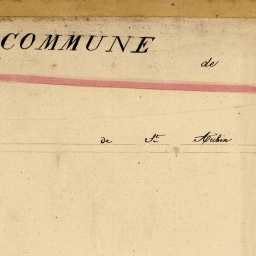 COMMUNE
de
de St. Aubin